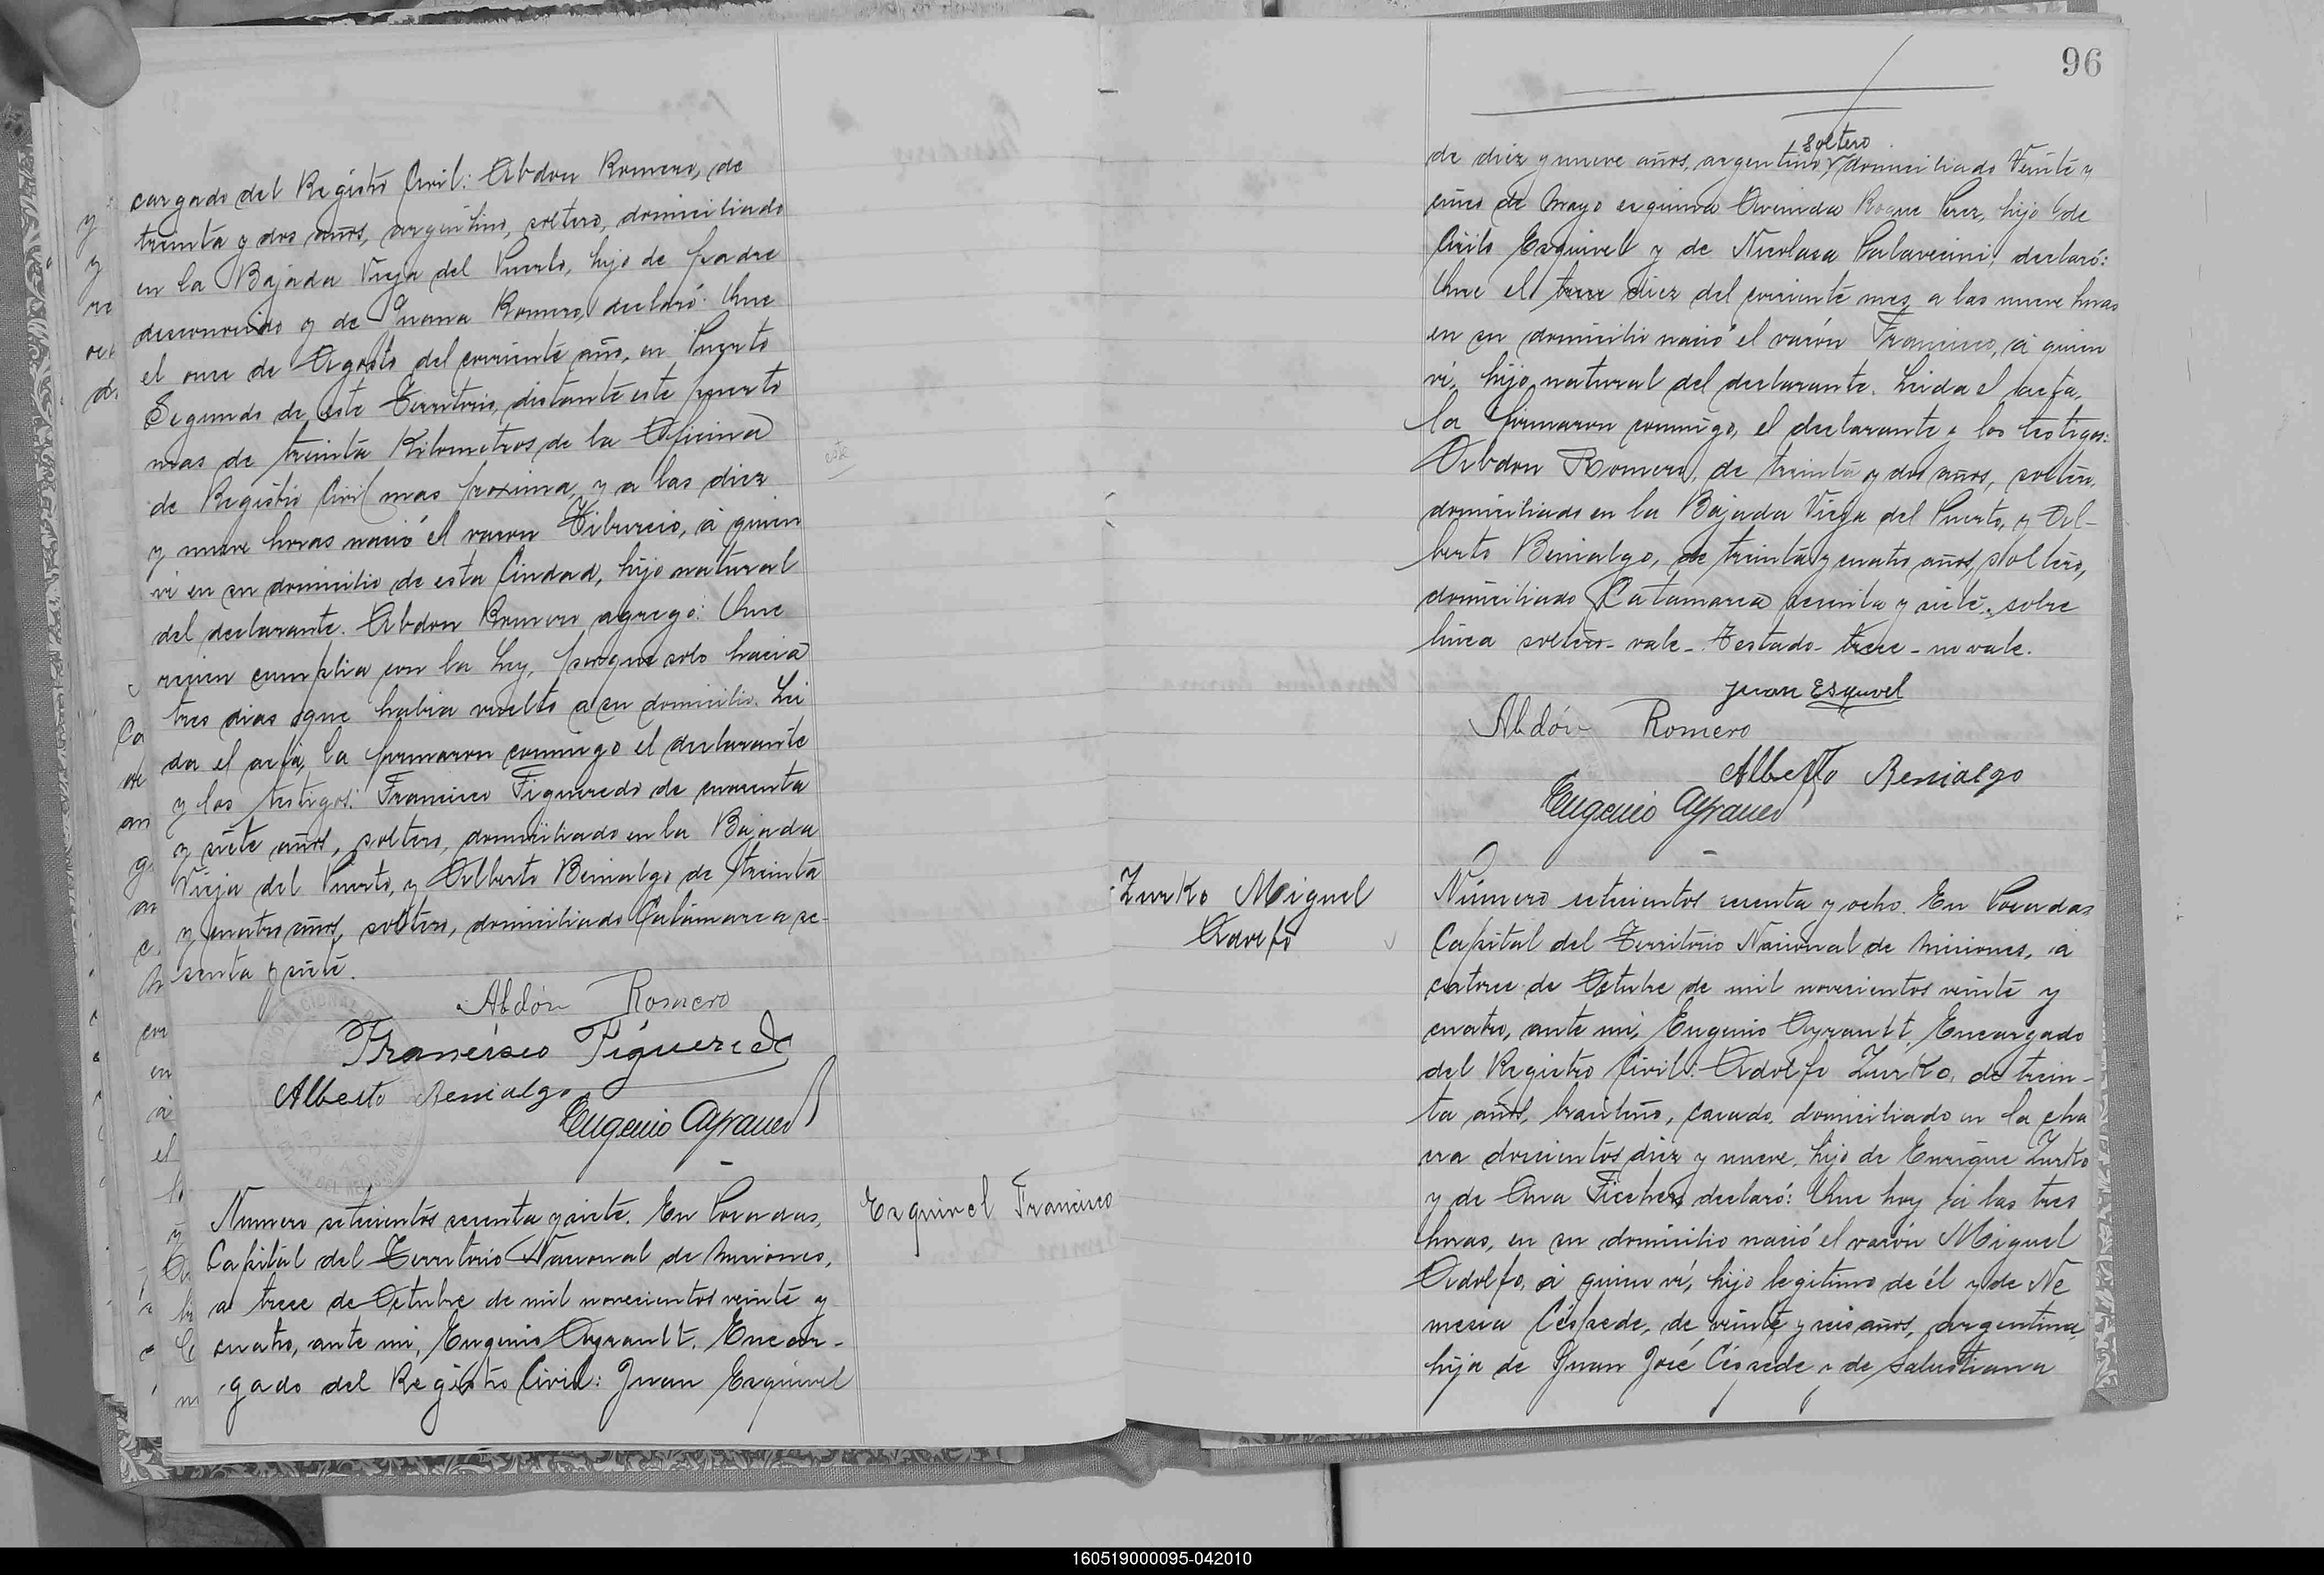 cargado del Registro Civil: Abdon Romero, de
treinta y dos años, argentino, soltero, domiciliado
en la Bajada Vieja del Puerto, hijo de padre
desconocido y de Juana Romero, declaró: Que
el once de Agosto del corriente año, en Puerto
Segundo de este Territorio, distante este puerto
mas de treinta Kilometros de la Oficina
de Registro Civil mas proxima, y a las diez
y nueve horas nació el varon Tiburcio, á quien
vi en su domicilio de esta Ciudad, hijo natural
del declarante. Abdon Romero agregó: Que
recien cumplia con la Ley, porque solo hacia
tres dias que habia vuelto a su domicilio. Lei
da el acta, la firmaron conmigo el declarante
y los testigos: Francisco Figueredo de cuarenta
y siete años, soltero, domiciliado en la Bajada
Vieja del Puerto, y Alberto Benialgo de treinta
y cuatro años, soltero, domiciliado Catamarca se-
senta y siete.
Abdón Romero
Francisco Figueredo
Alberto Benialgo
Eugenio Ayrault
Numero setecientos sesenta y siete. En Posadas,
Capital del Territorio Nacional de Misiones,
a trece de Octubre de mil novecientos veinte y
cuatro, ante mi, Eugenio Ayrault. Encar-
gado del Registro Civil: Juan Esquivel
Esquivel Francisco
96
soltero
de diez y nueve años, argentino, domiciliado Veinte y
cinco de Mayo esquina Avenida Roque Perez, hijo de
Cirilo Esquivel y de Nicolasa Palavecini, declaró:
Que el trece diez del corriente mes, a las nueve horas
en su domicilio nació el varón Francisco, á quien
vi, hijo natural del declarante. Leida el acta,
la firmaron conmigo, el declarante y los testigos:
Abdon Romero, de treinta y dos años, soltero,
domiciliado en la Bajada Vieja del Puerto, y Al-
berto Benialgo, de treinta y cuatro años, soltero,
domiciliado Catamarca sesenta y siete. sobre
linea soltero- vale- Testado- trece- no vale.
Juan Esquivel
Abdón Romero
Alberto Benialgo
Eugenio Ayrault
Zurko Miguel
Adolfo
Número setecientos sesenta y ocho. En Posadas
Capital del Territorio Nacional de Misiones, á
catorce de Octubre de mil novecientos veinte y
cuatro, ante mi, Eugenio Ayrault, Encargado
del Registro Civil: Adolfo Zurko, de trein-
ta años, brasileño, casado, domiciliado en la cha
cra doscientos diez y nueve, hijo de Enrique Zurko
y de Ana Ficcher, declaró: Que hoy á las tres
horas, en su domicilio nació el varón Miguel
Adolfo, á quien ví, hijo legitimo de él y de Ne
mesia Céspede, de veinte y seis años, argentina,
hija de Juan José Céspede y de Salustiana
160519000095-042010